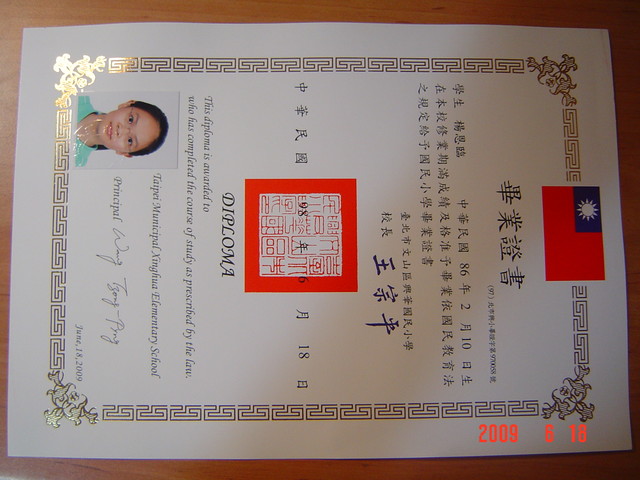 畢業證書
(97)北市興小畢證字第970098號
學生 楊恩臨 中華民國86年2月10日生
在本校修業期滿成績及格准予畢業依國民教育法
之規定給予國民小學畢業證書
臺北市文山區興華國民小學
校長 王宗平
中華民國 98 年 6 月 18 日
DIPLOMA
This diploma is awarded to
who has completed the course of study as prescribed by the law.
Taipei Municipal Xinghua Elementary School
Principal Wang Tzong-Ping
June,18,2009
2009 6 18